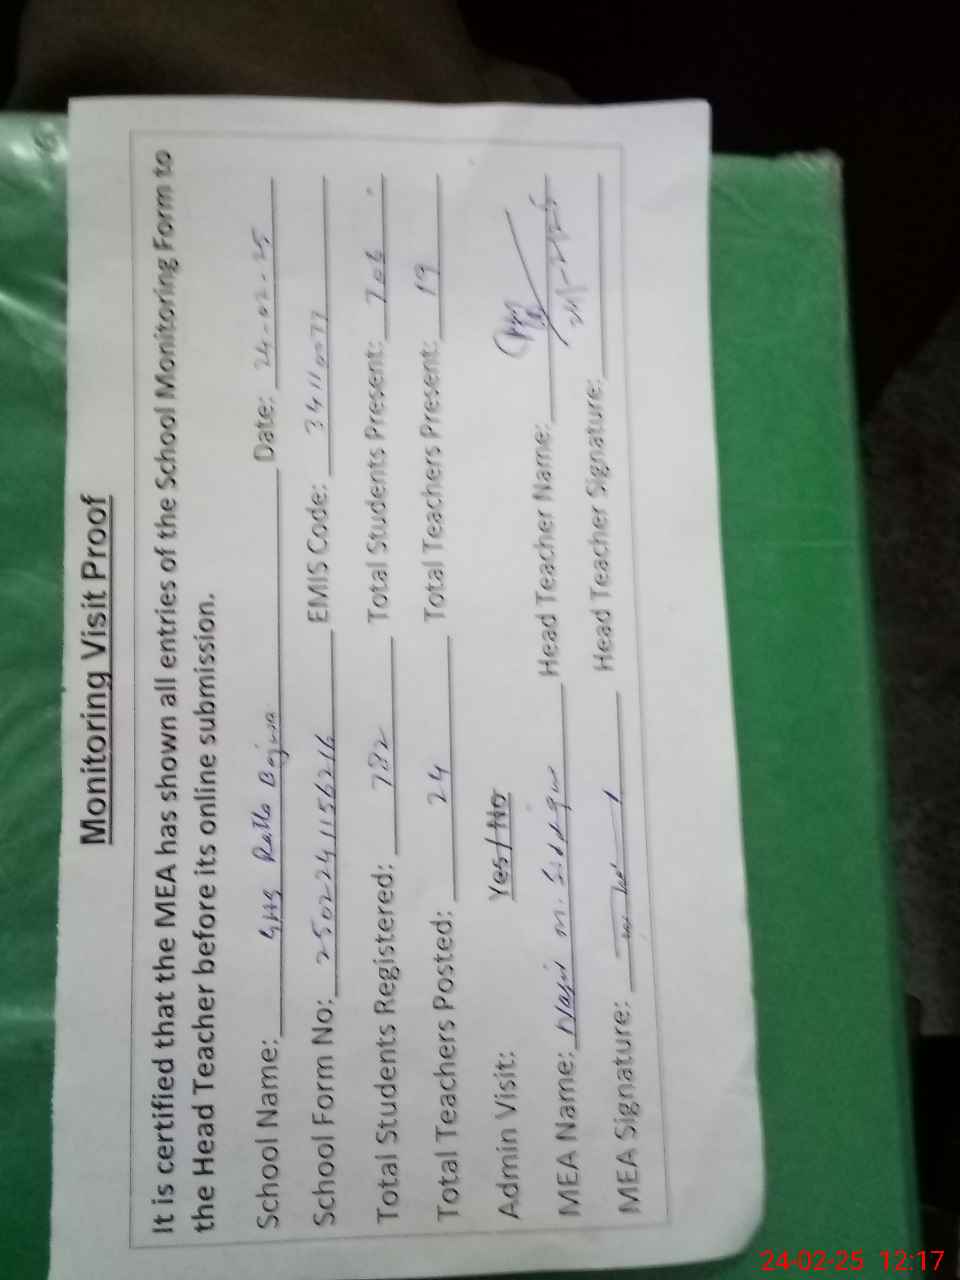 Monitoring Visit Proof
It is certified that the MEA has shown all entries of the School Monitoring Form to
the Head Teacher before its online submission.
School Name: Ratta Bajwa Date: 24-02-25
School Form No: 2502241156216 EMIS Code: 34110077
Total Students Registered: 782 Total Students Present: 706
Total Teachers Posted: 24 Total Teachers Present: 19
Admin Visit: Yes/No
MEA Name: M. Head Teacher Name:
24-2-25
MEA Signature: Head Teacher Signature:
24-02-25 12:17